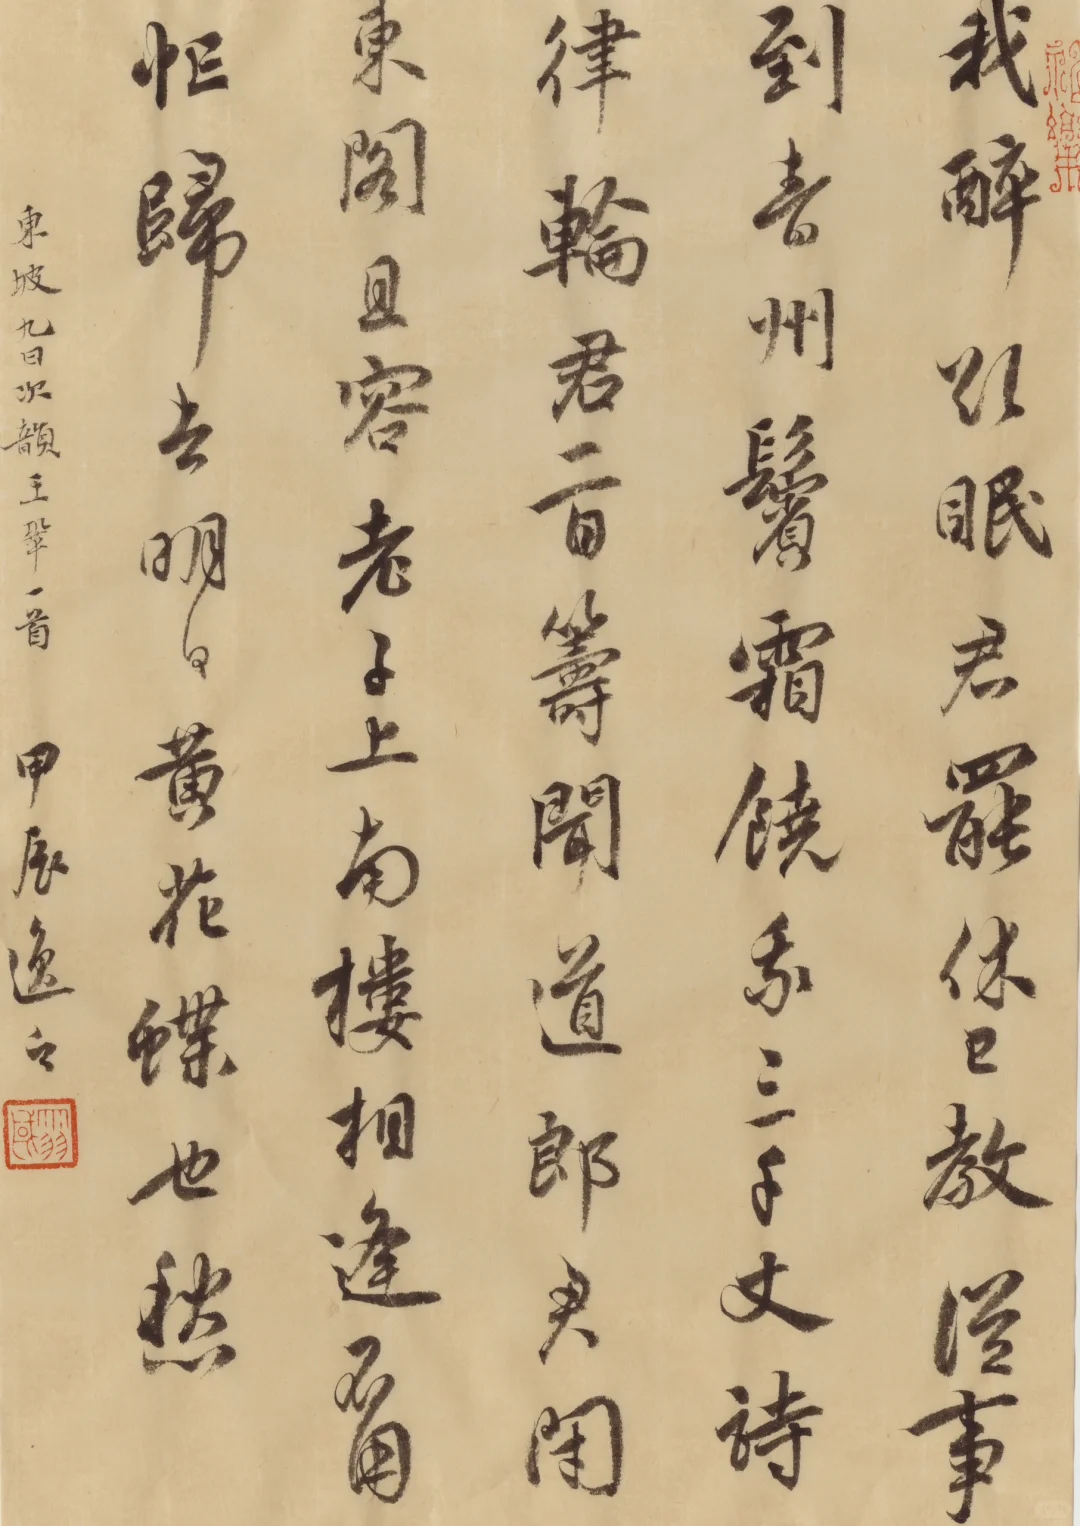 我醉欲眠君罷休已教從事
到青州鬢霜饒我三千丈詩
律輪君一百籌聞道郎君閉
東閣且容老子上南樓相逢不用
忙歸去明日黃花蝶也愁
東坡九日次韻王鞏一首 甲辰逸